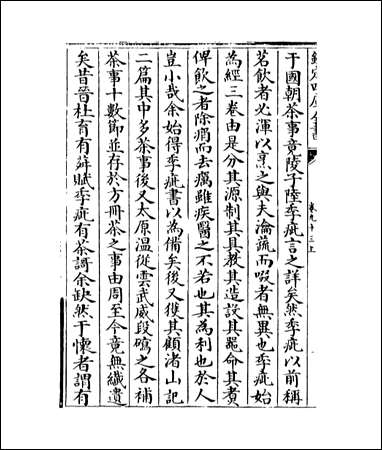 欽定四庫全書
卷九十三上
于國朝茶事竟陵子陸季疵言之詳矣然季疵以前稱
茗飲者必渾以烹之與夫瀹蔬而啜者無異也季疵始
為經三卷由是分其源制其具教其造設其器命其煮
俾飲之者除痟而去癘雖疾醫之不若也其為利也於人
豈小哉余始得季疵書以為備矣後又獲其顧渚山記
二篇其中多茶事後又太原温從雲武威段碣之各補
茶事十數節並存於方冊茶之事由周至今竟無纖遺
矣昔晉杜育有荈賦季疵有茶謌余缺然于懷者謂有